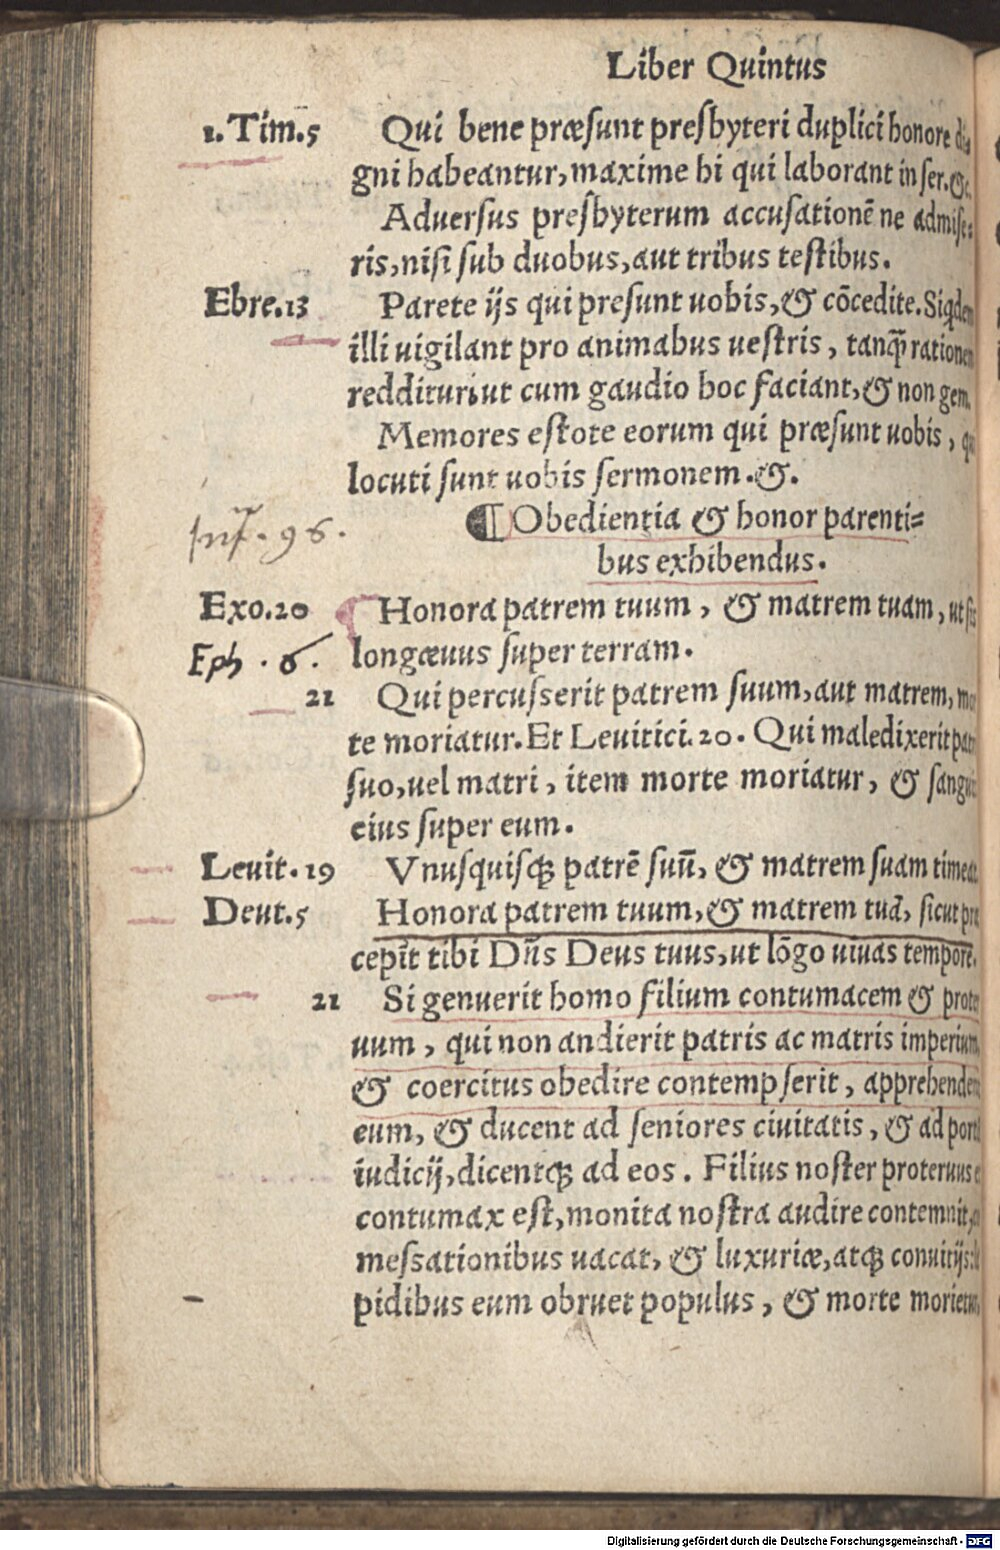 Liber Quintus
1.Tim.5 Qui bene præsunt presbyteri duplici honore di
gni habeantur, maxime hi qui laborant in ser.&c.
Aduersus presbyterum accusationẽ ne admise=
ris, nisi sub duobus, aut tribus testibus.
Ebre.13 Parete ijs qui presunt uobis, & cõcedite. Siqdem
illi uigilant pro animabus uestris, tanq̃ rationem
reddituri: ut cum gaudio hoc faciant, & non gem.
Memores estote eorum qui præsunt uobis,
locuti sunt uobis sermonem.&.
Inf. 96. ¶ Obedientia & honor parenti=
bus exhibendus.
Exo.20 Honora patrem tuum, & matrem tuam, ut sis
Eph. 6. longæuus super terram.
21 Qui percusserit patrem suum, aut matrem, mor
te moriatur. Et Leuitici.20. Qui maledixerit patri
suo, uel matri, item morte moriatur, & sangui
eius super eum.
Leuit.19 Vnusquisq; patrẽ suũ, & matrem suam timeat.
Deut.5 Honora patrem tuum, & matrem tuã, sicut præ
cepit tibi Dñs Deus tuus, ut lõgo uiuas tempore.
21 Si genuerit homo filium contumacem & proter
uum, qui non andierit patris ac matris imperium,
& coercitus obedire contempserit, apprehendent
eum, & ducent ad seniores ciuitatis, & ad portã
iudicij, dicentq; ad eos. Filius noster proteruus e
contumax est, monita nostra audire contemnit,
messationibus uacat, & luxuriæ, atq; conuiuijs:
pidibus eum obruet populus, & morte morietur.
Digitalisierung gefördert durch die Deutsche Forschungsgemeinschaft - DFG